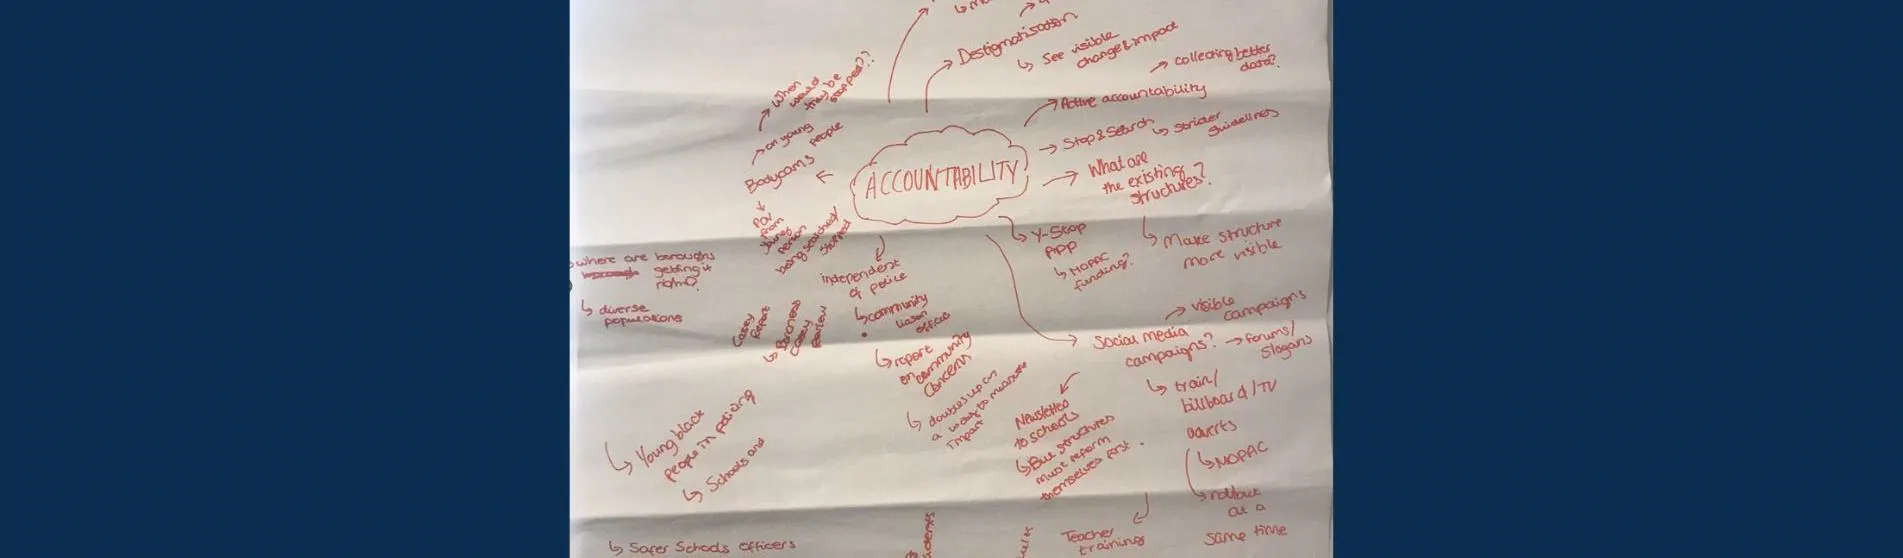 Destigmatisation
See visible
change & impact
collecting better
data?
Active accountability
Stop & Search
stricter
guidelines
When
would
they be
stopped??
on young
people
Bodycams
ACCOUNTABILITY
What are
the existing
structures?
POV
from
young
person
being searched/
stopped
Y-Stop
App
MOPAC
funding?
Make structure
more visible
where are boroughs
getting it
right?
diverse
populations
independent
of police
community
liason
officer
report
on community
concerns
doubles up as
a way to measure
impact
Casey
Report
Baroness
Casey
Review
visible
campaigns
Social media
campaigns?
forums/
slogans
train/
billboard/TV
adverts
MOPAC
rollout
at a
same time
Newsletter
to schools
But structures
must reform
themselves first.
Young black
people in policing
Schools and
Teacher
training
Safer Schools Officers